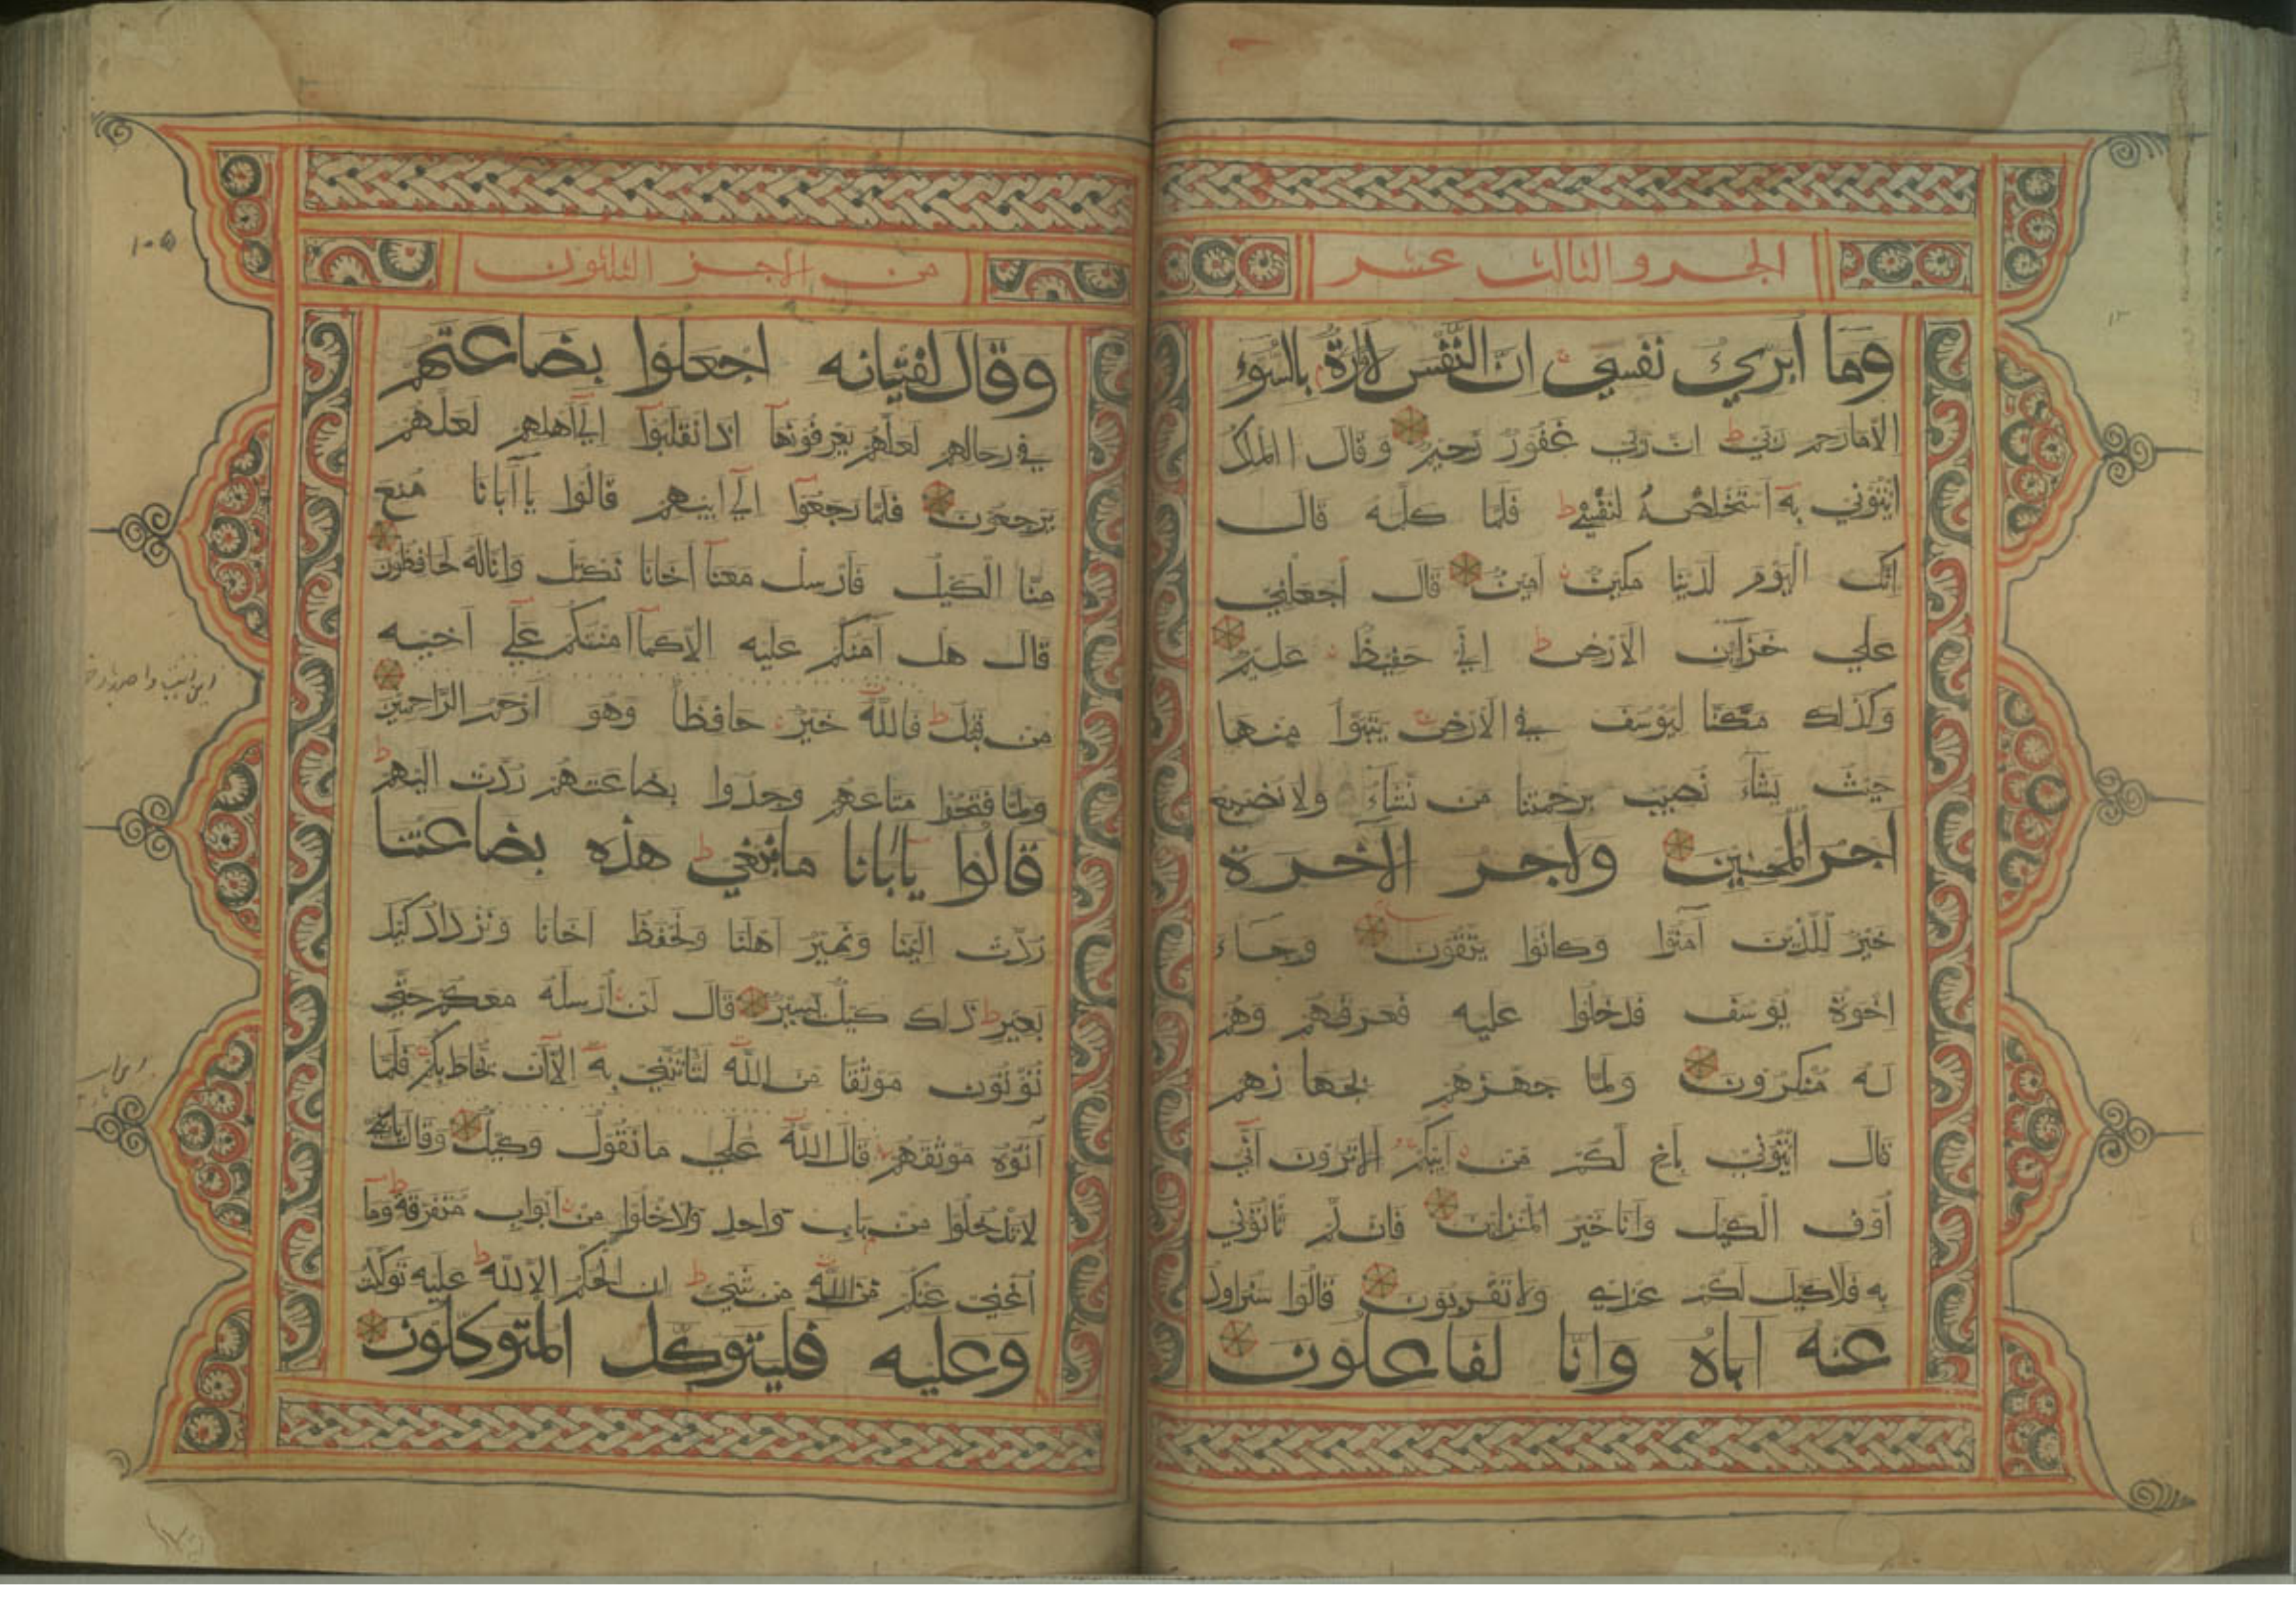 الجزو الثالث عشر
وَمَا أُبَرِّئُ نَفْسِي اِنَّ النَّفْسَ لَأَمَّارَةٌ بِالسُّوءِ
الا ما رحم ربي ان ربي غفور رحيم وقال الملك
ائتوني به استخلصه لنفسي فلما كلمه قال
انك اليوم لدينا مكين امين قال اجعلني
علي خزاين الارض اني حفيظ عليم
وكذلك مكنا ليوسف في الارض يتبوأ منها
حيث يشآء نصيب برحمتنا من نشآء ولا نضيع
اجر المحسنين ولاجر الآخرة
خير للذين آمنوا وكانوا يتقون وجاء
اخوة يوسف فدخلوا عليه فعرفهم وهم
له منكرون ولما جهزهم بجهازهم
قال ائتوني بأخ لكم من ابيكم الا ترون اني
أوف الكيل وانا خير المنزلين فان لم تأتوني
به فلا كيل لكم عندي ولا تقربون قالوا سنراود
عنه اباه وانا لفاعلون
من الاجز الثلثون
وقال لفتيانه اجعلوا بضاعتهم
في رحالهم لعلهم يعرفونهآ اذا انقلبوآ اليٓ اهلهم لعلهم
يرجعون فلما رجعوآ اليٓ ابيهم قالوا يآ آبانا منع
منا الكيل فأرسل معنآ اخانا نكتل وانا له لحافظون
قال هل آمنكم عليه الا كمآ امنتكم عليٓ اخيه
من قبل فالله خير حافظا وهو ارحم الراحمين
ولما فتحوا متاعهم وجدوا بضاعتهم ردت اليهم
قالوا يآبانا ما نبغي هذه بضاعتنا
ردت الينا ونمير اهلنا ونحفظ اخانا ونزداد كيل
بعير ذلك كيل يسير قال لن ارسله معكم حتي
تؤتون موثقا من الله لتأتنني به الآ ان يحاط بكم فلمآ
آتوه موثقهم قال الله علي ما نقول وكيل وقال يابني
لا تدخلوا من باب واحد وادخلوا من ابواب متفرقة ومآ
أغني عنكم من الله من شيء ان الحكم الا لله عليه توكلت
وعليه فليتوكل المتوكلون